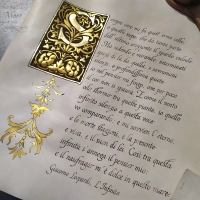 Sempre caro mi fu quest'ermo colle,
e questa siepe, che da tanta parte
dell'ultimo orizzonte il guardo esclude.
Ma sedendo e mirando, interminati
spazi di là da quella, e sovrumani
silenzi, e profondissima quiete
io nel pensier mi fingo, ove per poco
il cor non si spaura. E come il vento
odo stormir tra queste piante, io quello
infinito silenzio a questa voce
vo comparando: e mi sovvien l'eterno,
e le morte stagioni, e la presente
e viva, e il suon di lei. Così tra questa
infinità s'annega il pensier mio:
e il naufragar m'è dolce in questo mare.
Giacomo Leopardi, L'Infinito